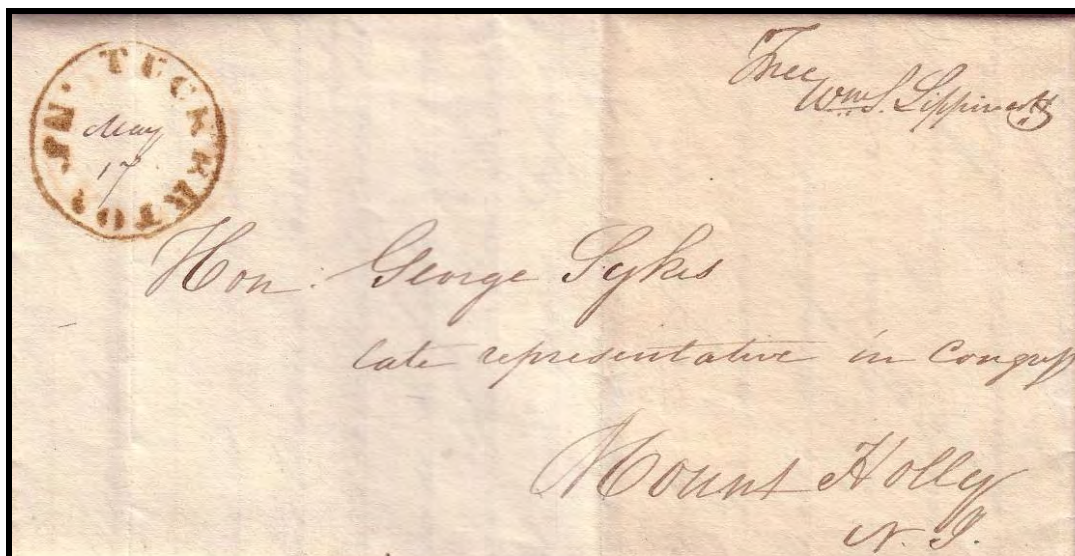 TUCKERTON. NJ.
May
17
Free
Wm S. Lippincott
Hon. George Sykes
late representative in Congress
Mount Holly
N. J.